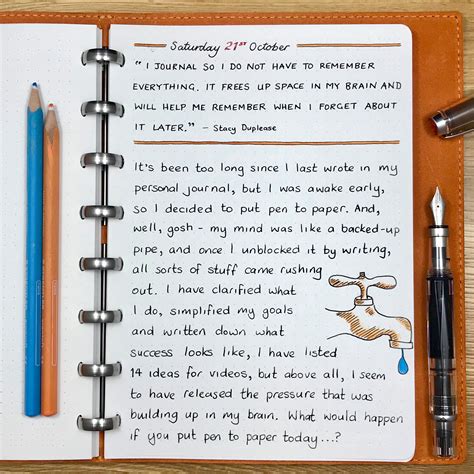 Saturday 21ST October
"I JOURNAL SO I DO NOT HAVE TO REMEMBER
EVERYTHING. IT FREES UP SPACE IN MY BRAIN AND
WILL HELP ME REMEMBER WHEN I FORGET ABOUT
IT LATER." - Stacy Duplease
It's been too long since I last wrote in my
personal journal, but I was awake early,
so I decided to put pen to paper. And,
well, gosh - my mind was like a backed-up
pipe, and once I unblocked it by writing,
all sorts of stuff came rushing
out. I have clarified what
I do, simplified my goals
and written down what
success looks like, I have listed
14 ideas for videos, but above all, I seem
to have released the pressure that was
building up in my brain. What would happen
if you put pen to paper today...?